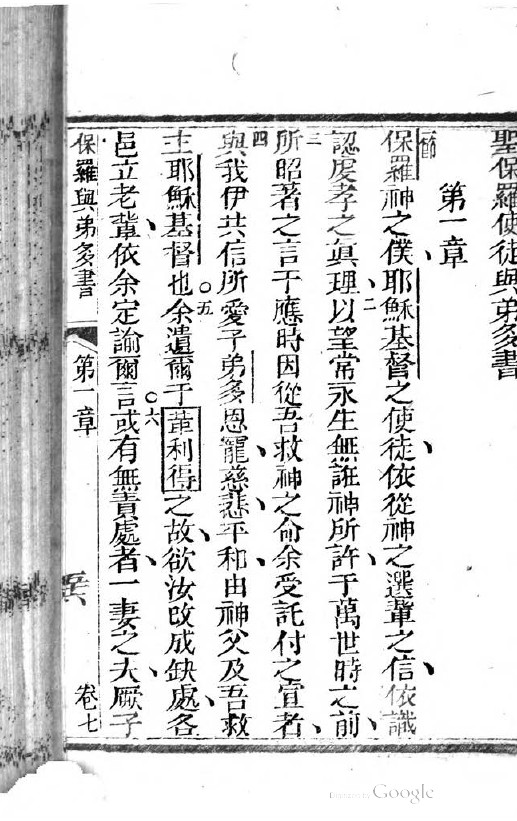 聖保羅使徒與弟多書
第一章
一節
保羅神之僕耶穌基督之使徒依從神之選輩之信依識
認虔孝之眞理二以望常永生無誑神所許于萬世時之前
三所昭著之言于應時因從吾救神之命余受託付之宣者
四與我伊共信所愛子弟多恩寵慈悲平和由神父及吾救
主耶穌基督也○五余遺爾于革利得之故欲汝改成缺處各
邑立老輩依余定諭爾言○六或有無責處者一妻之夫厥子
保羅與弟多書
第一章
卷七
Google